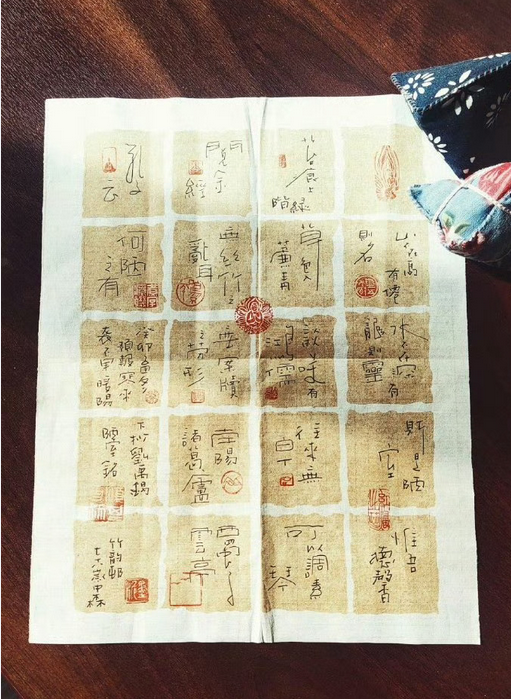 山不在高
有僊
則名
水不在深有
龍則靈
斯是陋
室
惟吾
德馨
苔痕上
階綠
草色入
簾青
談笑有
鴻儒
往來無
白丁
可以調素
琴
閱金
經
無絲竹之
亂耳
無案牘
之勞形
南陽
諸葛廬
西蜀子
雲亭
孔子
云
何陋
之有
癸卯
暖陽
下抄劉禹錫
陋室銘
竹韵邨